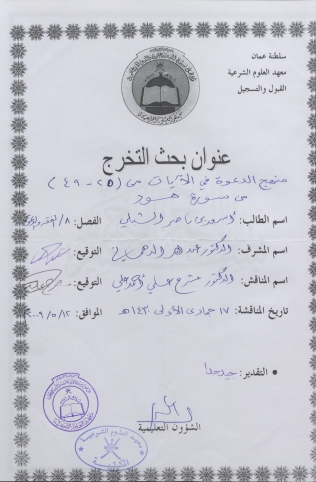 سلطنة عمان
معهد العلوم الشرعية
القبول والتسجيل
عنوان بحث التخرج
منهج الدعوة في الآيات من (٢٥ - ٤٩)
من سورة هود
اسم الطالب: ناصر الشبلي الفصل: ٨/
اسم المشرف: الدكتور التوقيع:
اسم المناقش: الدكتور علي التوقيع:
تاريخ المناقشة: ١٧ جمادى الأولى ١٤٣٠هـ الموافق: ١٢/٥/٢٠٠٩
• التقدير: جيد جدا
الشؤون التعليمية